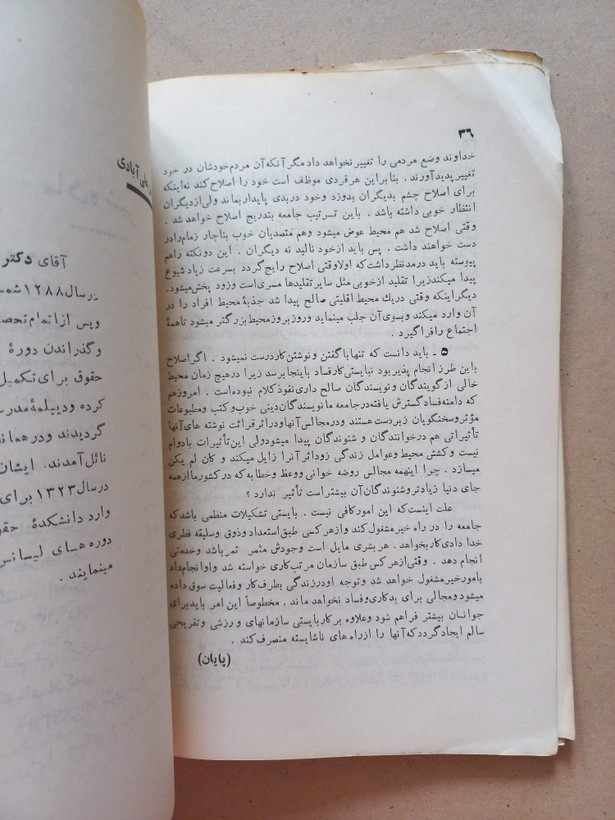 ۳۶
خداوند وضع مردمی را تغییر نخواهد داد مگر آنکه آن مردم خودشان در خود
تغییر پدید آورند . بنابر این هر فردی موظف است خود را اصلاح کند نه اینکه
برای اصلاح چشم بدیگران بدوزد وخود در بدی پایدار بماند ولی از دیگران
انتظار خوبی داشته باشد . باین ترتیب جامعه بتدریج اصلاح خواهد شد .
وقتی اصلاح شد هم محیط عوض میشود وهم متصدیان خوب بناچار زمام را در
دست خواهند داشت . پس باید از خود نالید نه دیگران . این دو نکته راهم
پیوسته باید در مد نظر داشت که اولا وقتی اصلاح رایج گردد بسرعت زیاد شیوع
پیدا میکند زیرا تقلید از خوبی مثل سایر تقلیدها مسری است وزود پخش میشود .
دیگر اینکه وقتی در یك محیط اقلیتی صالح پیدا شد جذبهٔ محیط افراد را در
آن وارد میکند وبسوی آن جلب مینماید وروز بروز محیط بزرگتر میشود تا همهٔ
اجتماع را فرا گیرد .
۵ - باید دانست که تنها با گفتن و نوشتن کار درست نمیشود . اگر اصلاح
باین طرز انجام پذیر بود نبایستی کار فساد باینجا برسد زیرا در هیچ زمان محیط
خالی از گویندگان و نویسندگان صالح داری نفوذ کلام نبوده است . امروز هم
که دامنه فساد گسترش یافته در جامعه ما نویسندگان دینی خوب وکتب ومطبوعات
مؤثر وسخنگویان زبردست هستند و در مجالس آنها ودر اثر قرائت نوشته های آنها
تأثیراتی هم در خوانندگان و شنوندگان پیدا میشود ولی این تأثیرات بادوام
نیست وکشش محیط وعوامل زندگی زود اثر آنرا زایل میکند و کان لم یکن
میسازد . چرا اینهمه مجالس روضه خوانی ووعظ وخطابه که در کشور ما از همه
جای دنیا زیادتر وشنوندگان آن بیشتر است تأثیر ندارد ؟
علت اینست که این امور کافی نیست . بایستی تشکیلات منظمی باشد که
جامعه را در راه خیر مشغول کند واز هر کسی طبق استعداد وذوق وسلیقه فطری
خدا دادی کار بخواهد . هر بشری مایل است وجودش مثمر ثمر باشد وخدمتی
انجام دهد . وقتی از هر کس طبق سازمان مرتب کاری خواسته شد واو انجام داد
بامور خیر مشغول خواهد شد وتوجه او در زندگی بطرف کار وفعالیت سوق داده
میشود ومجالی برای بدکاری وفساد نخواهد ماند . مخصوصاً این امر باید برای
جوانان بیشتر فراهم شود وعلاوه بر کار بایستی سازمانهای و رزشی وتفریحی
سالم ایجاد گردد که آنها را از راه های ناشایسته منصرف کند .
(پایان)
آبادی
آقای دکتر
در سال ۱۲۸۸
وپس از اتمام
و گذراندن دورهٔ
حقوق برای تکمیل
کرده و دیپلمهٔ
گردیدند ودر
نائل آمدند . ایشان
در سال ۱۳۲۳ برای
وارد دانشکدهٔ
دوره های لیسانس
مینمایند .